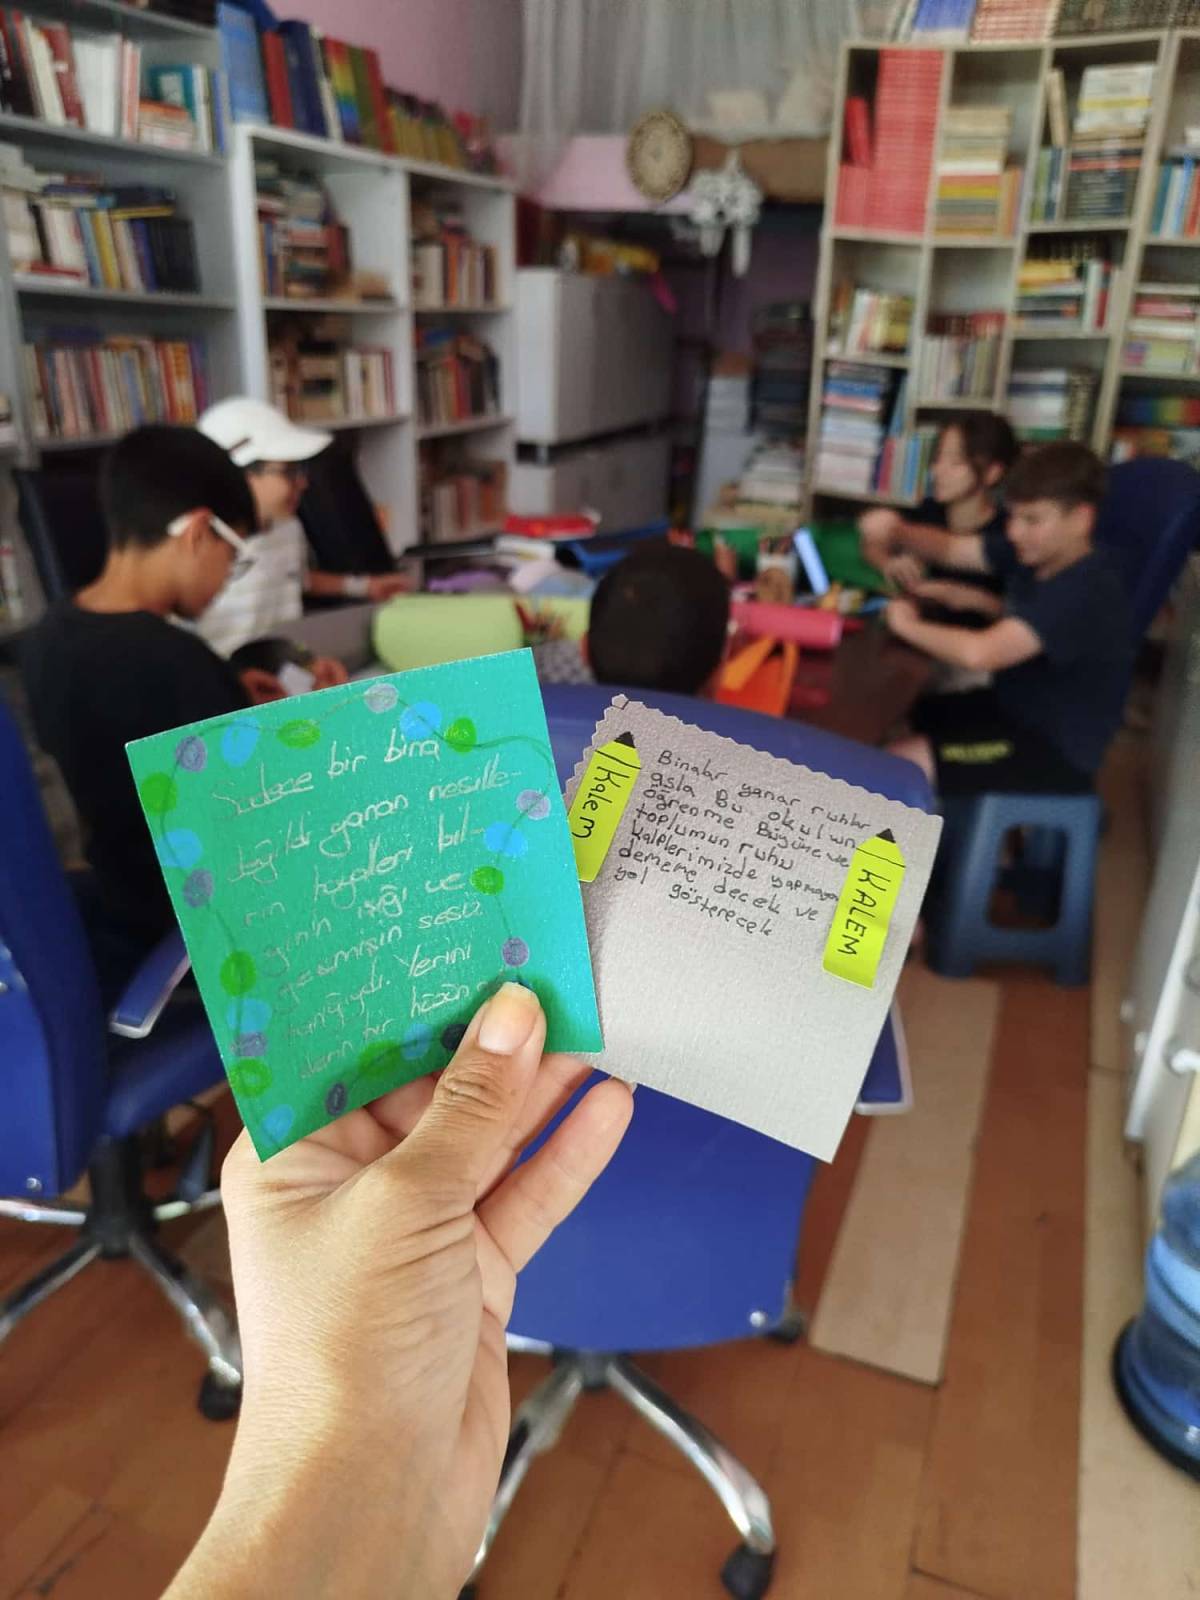 Sadece bir bina
değildi yanan nesille-
rin hayalleri bil-
ginin ışığı ve
geçmişin sessiz
tanığıydı. Yerini
derin bir hüzün
Kalem
Binalar yanar ruhlar
asla Bu okulun
öğrenme
toplumun ruhu
kalplerimizde
deme decek ve
yol gösterecek
KALEM